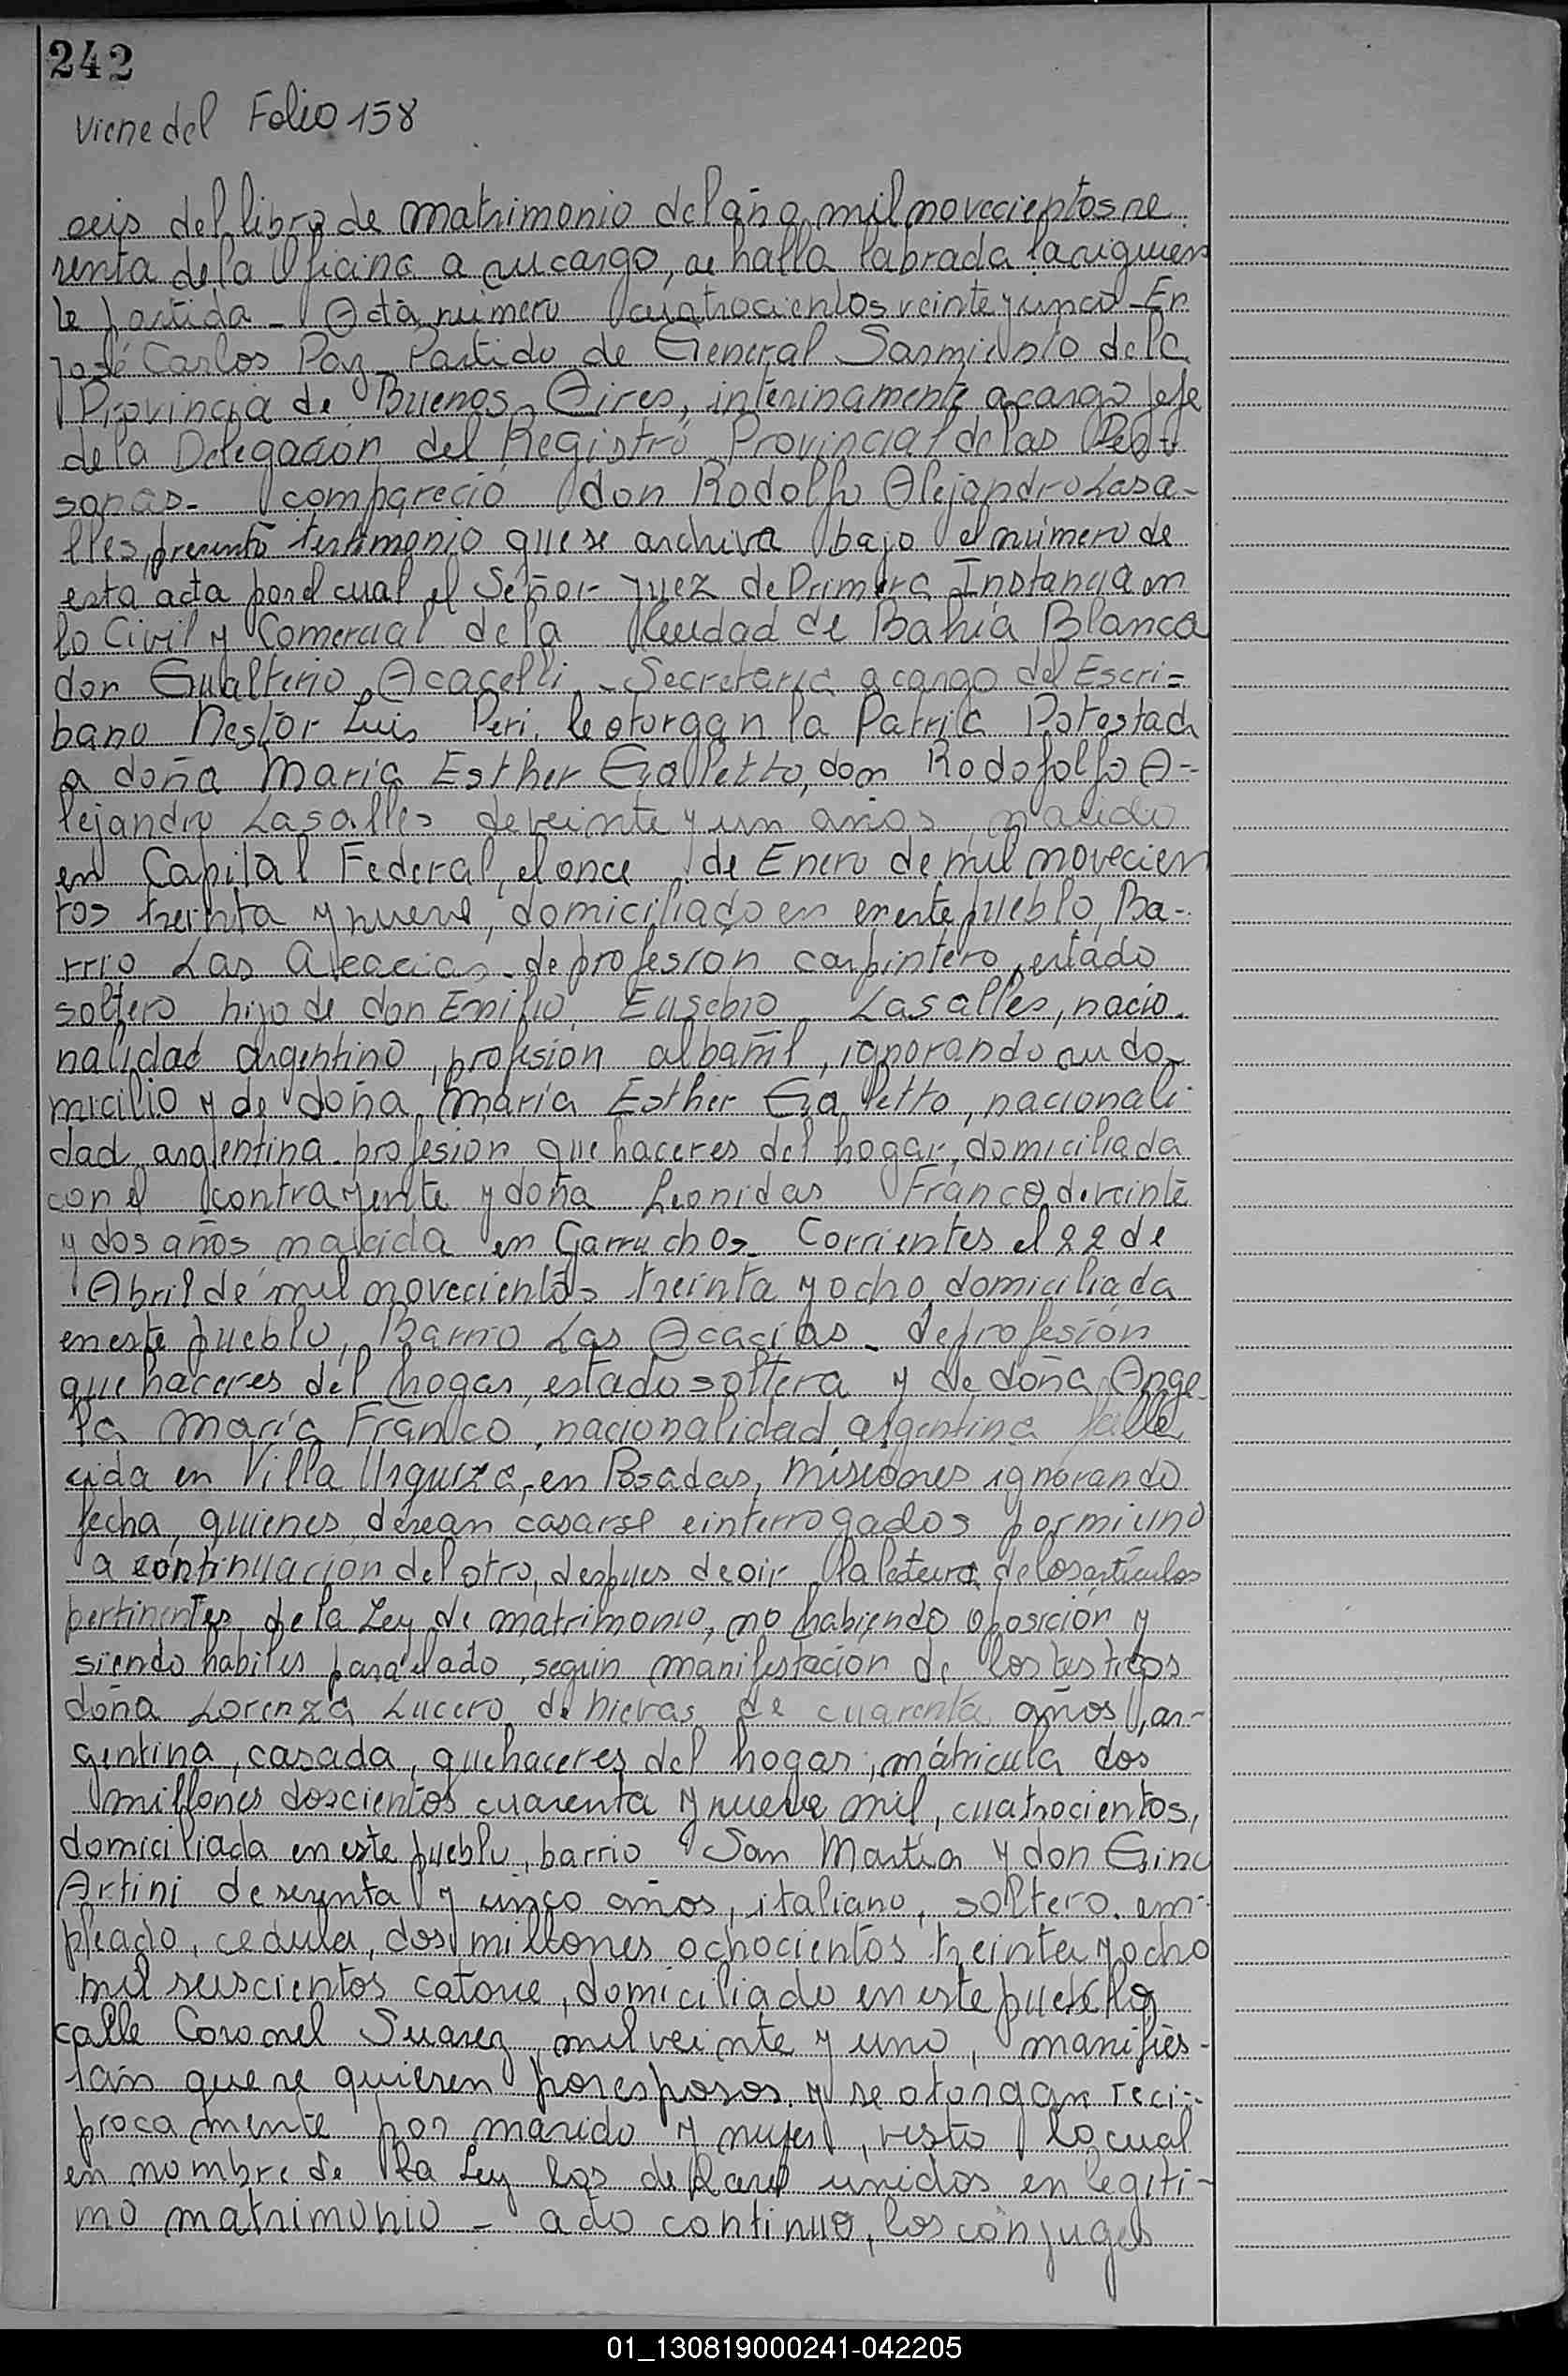 242
Viene del Folio 158
seis del libro de matrimonio del año mil novecientos se
senta de la Oficina a su cargo, se halla labrada la siguien
te partida - Acta número cuatrocientos veinte y cinco - En
José Carlos Paz Partido de General Sarmiento de la
Provincia de Buenos Aires, interinamente a cargo jefe
de la Delegación del Registro Provincial de las Per-
sonas - compareció don Rodolfo Alejandro Lasa-
lles, presentó testimonio que se archiva bajo el número de
esta acta por el cual el Señor Juez de Primera Instancia en
lo Civil y Comercial de la Ciudad de Bahía Blanca
don Gualterio Acacelli - Secretaría a cargo del Escri=
bano Nestor Luis Peri, le otorgan la Patria Potestad
a doña María Esther Galletto, don Rodofolfo A-
lejandro Lasalles de veinte y un años, nacido
en Capital Federal, el once de Enero de mil novecien
tos treinta y nueve, domiciliado en en este pueblo, Ba-
rrio Las Acacias - de profesión carpintero, estado
soltero hijo de don Emilio Eusebio Lasalles, nacio-
nalidad argentino, profesion albañil, ignorando su do-
micilio y de doña María Esther Galletto, nacionali-
dad argentina - profesion quehaceres del hogar, domiciliada
con el contrayente y doña Leonidas Franco de veinte
y dos años nacida en Garruchos - Corrientes el 22 de
Abril de mil novecientos treinta y ocho domiciliada
en este pueblo, Barrio Las Acacias - de profesión
quehaceres del hogar, estado soltera y de doña Ange-
la María Franco, nacionalidad argentina falle
cida en Villa Urquiza, en Posadas, Misiones ignorando
fecha, quienes desean casarse e interrogados por mi uno
a continuacion del otro, despues de oir la lectura de los artículos
pertinentes de la Ley de matrimonio, no habiendo oposición y
siendo habiles para el acto, según manifestación de los testigos
doña Lorenza Lucero de Nievas de cuarenta años, ar-
gentina, casada, quehaceres del hogar, mátricula dos
millones doscientos cuarenta y nueve mil, cuatrocientos,
domiciliada en este pueblo, barrio San Martín y don Gino
Artini de sesenta y cinco años, italiano, soltero. em-
pleado, cedula, dos millones ochocientos treinta y ocho
mil seiscientos catorce, domiciliado en este pueblo
calle Coronel Suarez, mil veinte y uno, manifies-
tan que se quieren por esposos y se otorgan reci-
procamente por marido y mujer, visto lo cual
en nombre de la Ley los declaré unidos en legiti-
mo matrimonio - acto continuo, los conjuges
01_130819000241-042205